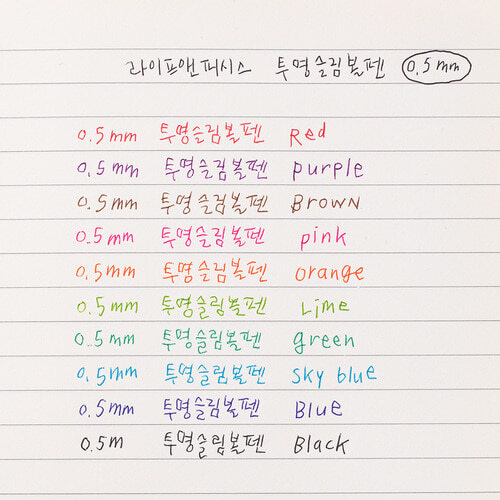 라이프앤피시스 투명슬림볼펜 0.5mm
0.5mm 투명슬림볼펜 Red
0.5mm 투명슬림볼펜 purple
0.5mm 투명슬림볼펜 BROWN
0.5mm 투명슬림볼펜 pink
0.5mm 투명슬림볼펜 orange
0.5mm 투명슬림볼펜 Lime
0.5mm 투명슬림볼펜 green
0.5mm 투명슬림볼펜 sky blue
0.5mm 투명슬림볼펜 Blue
0.5m 투명슬림볼펜 Black